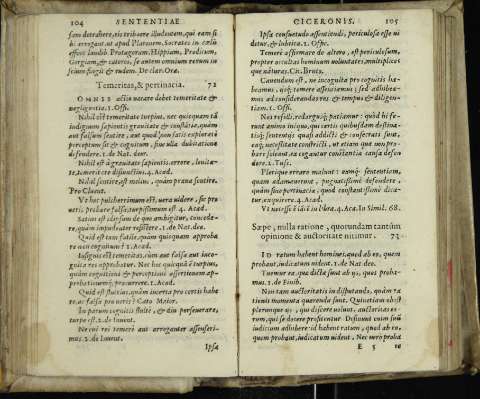 104 SENTENTIAE
sam detrahere, eis tribuere illudentem, qui eam sibi
bi arrogant ut apud Platonem Socrates in cœlũ
effert laudib. Protagoram, Hippiam, Prodicum,
Gorgiam, & cæteros, se autem omnium rerum in
scium fingit & rudem. De clar. Ora.
Temeritas, & pertinacia. 72
OMNIS actio vacare debet temeritate &
negligentia. 1. Offi.
Nihil est temeritate turpius, nec quicquam tã
indignum sapientis gravitate & constãtia, quàm
aut falsum sentire, aut quod non satis explorate
perceptum sit & cognitum, sine ulla dubitatione
defendere. 1. de Nat. deor.
Nihil est à gravitate sapientis errore, levita-
te, temeritate disiunctius. 4. Acad.
Nihil sentire, est melius, quàm prava sentire.
Pro Cluent.
Ut hoc pulcherrimum est, vera videre, sic pro
veris probare falsa, turpissimum est. 4. Acad.
Satius est id ipsum de quo ambigitur, concede-
re, quàm impudenter resistere. 1. de Nat. deor.
Quid est tam futile, quàm quicquam approba
re non cognitum? 1. Acad.
Insignis est temeritas, cùm aut falsa aut inco-
gnita res approbatur. Nec hoc quicquã ẽ turpius,
quàm cognitioni & perceptioni assertionem ap-
probationemq; præcurrere. 1. Acad.
Quid est stultius, quàm incerta pro certis habe
re, ac falsa pro veris? Cato Maior.
In parum cognitis stulte, & diu perseverare,
turpe est. 2. de Invent.
Ne cui rei temerè aut arroganter assenseri-
mus. 2. de Invent.
Ipsa
CICERONIS. 105
Ipsa consuetudo assentiendi, periculosa esse vi
detur, & lubrica. 1. Offic.
Temerè affirmare de altero, est periculosum,
propter occultas hominum voluntates, multiplices
que naturas. Cic. Bruto.
Cavendum est, ne incognita pro cognitis ha-
beamus, iisq; temere assentiamur; sed adhibea-
mus ad considerandas res & tempus & diligen-
tiam. 1. Offic.
Nos refelli, redarguiq; patiamur: quòd hi fe-
runt animo iniquo, qui certis quibusdam destina-
tisq; sententijs quasi addicti & consecrati sunt,
eaq; necessitate constricti, ut etiam quæ non pro-
bare soleant, ea cogantur constantiæ causa defen-
dere. 2. Tusc.
Plerique errare malunt, eamq; sententiam,
quam adamaverunt, pugnacissimè defendere,
quàm sine pertinacia quod constantissimè dica-
tur, exquirere. 4. Acad.
Vt navesse i idẽ in Libra. 4. Aca. In Simil. 68.
Sæpe, nulla ratione, quorundam tantùm
opinione & auctoritate nitimur. 73
ID ratum habent homines, quod ab eo, quem
probant, iudicatum vident. 1. de Nat. deo.
Tuemur ea, quæ dicta sunt ab ijs, quos proba-
mus. 2. de Finib.
Non tam auctoritatis in disputando, quàm ra
tionis momenta quærenda sunt. Quinetiam obest
plerunque ijs, qui discere volunt, auctoritas eo-
rum, qui se docere profitentur. Desinunt enim suũ
iudicium adhibere: id habent ratum, quod ab eo,
quem probant, iudicatum vident. Nec verò proba
E 5 re